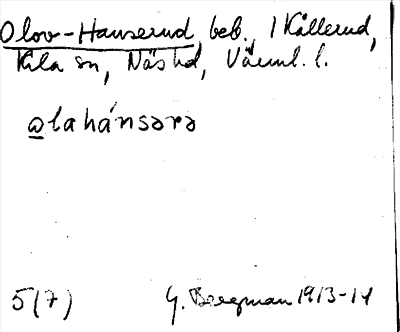 Olov-Hanserud beb., 1 Kållerud,
Kila sn, Näs hd, Värml. l.
ɷlahánsərə
5(7) G. Bergman 1913-14